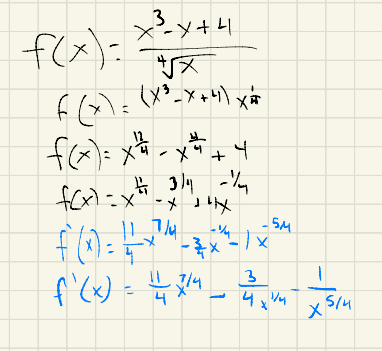 f(x) = (x³ - x + 4) / ⁴√x
f(x) = (x³ - x + 4) x^(1/4)
f(x) = x^(12/4) - x^(4/4) + 4
f(x) = x^(11/4) - x^(3/4) + 4x^(-1/4)
f'(x) = 11/4 x^(7/4) - 3/4 x^(-1/4) - 1x^(-5/4)
f'(x) = 11/4 x^(7/4) - 3/(4x^(1/4)) - 1/x^(5/4)